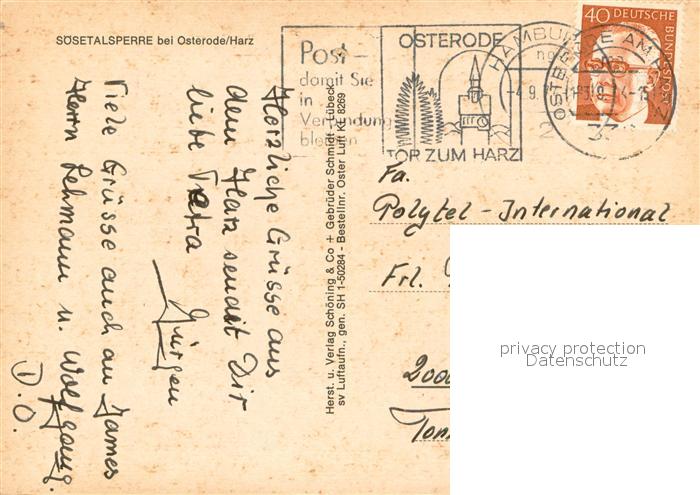 SÖSETALSPERRE bei Osterode/Harz
Herzliche Grüsse aus
dem Harz sendet Dir
liebe Petra
Jürgen
Viele Grüsse auch an James
Herrn Lehmann u. Wolfgang.
D.O.
Herst. u. Verlag Schöning & Co + Gebrüder Schmidt - Lübeck
sv Luftaufn., gen. SH 1-50284 - Bestellnr. Oster Luft KL 8269
Post –
damit Sie
in
Verbindung
bleiben
OSTERODE
TOR ZUM HARZ
HAMBU
-4.9.
OSTERODE AM
40 DEUTSCHE
BUNDESPOST
Fa.
Polytel - International
Frl.
2000
privacy protection
Datenschutz